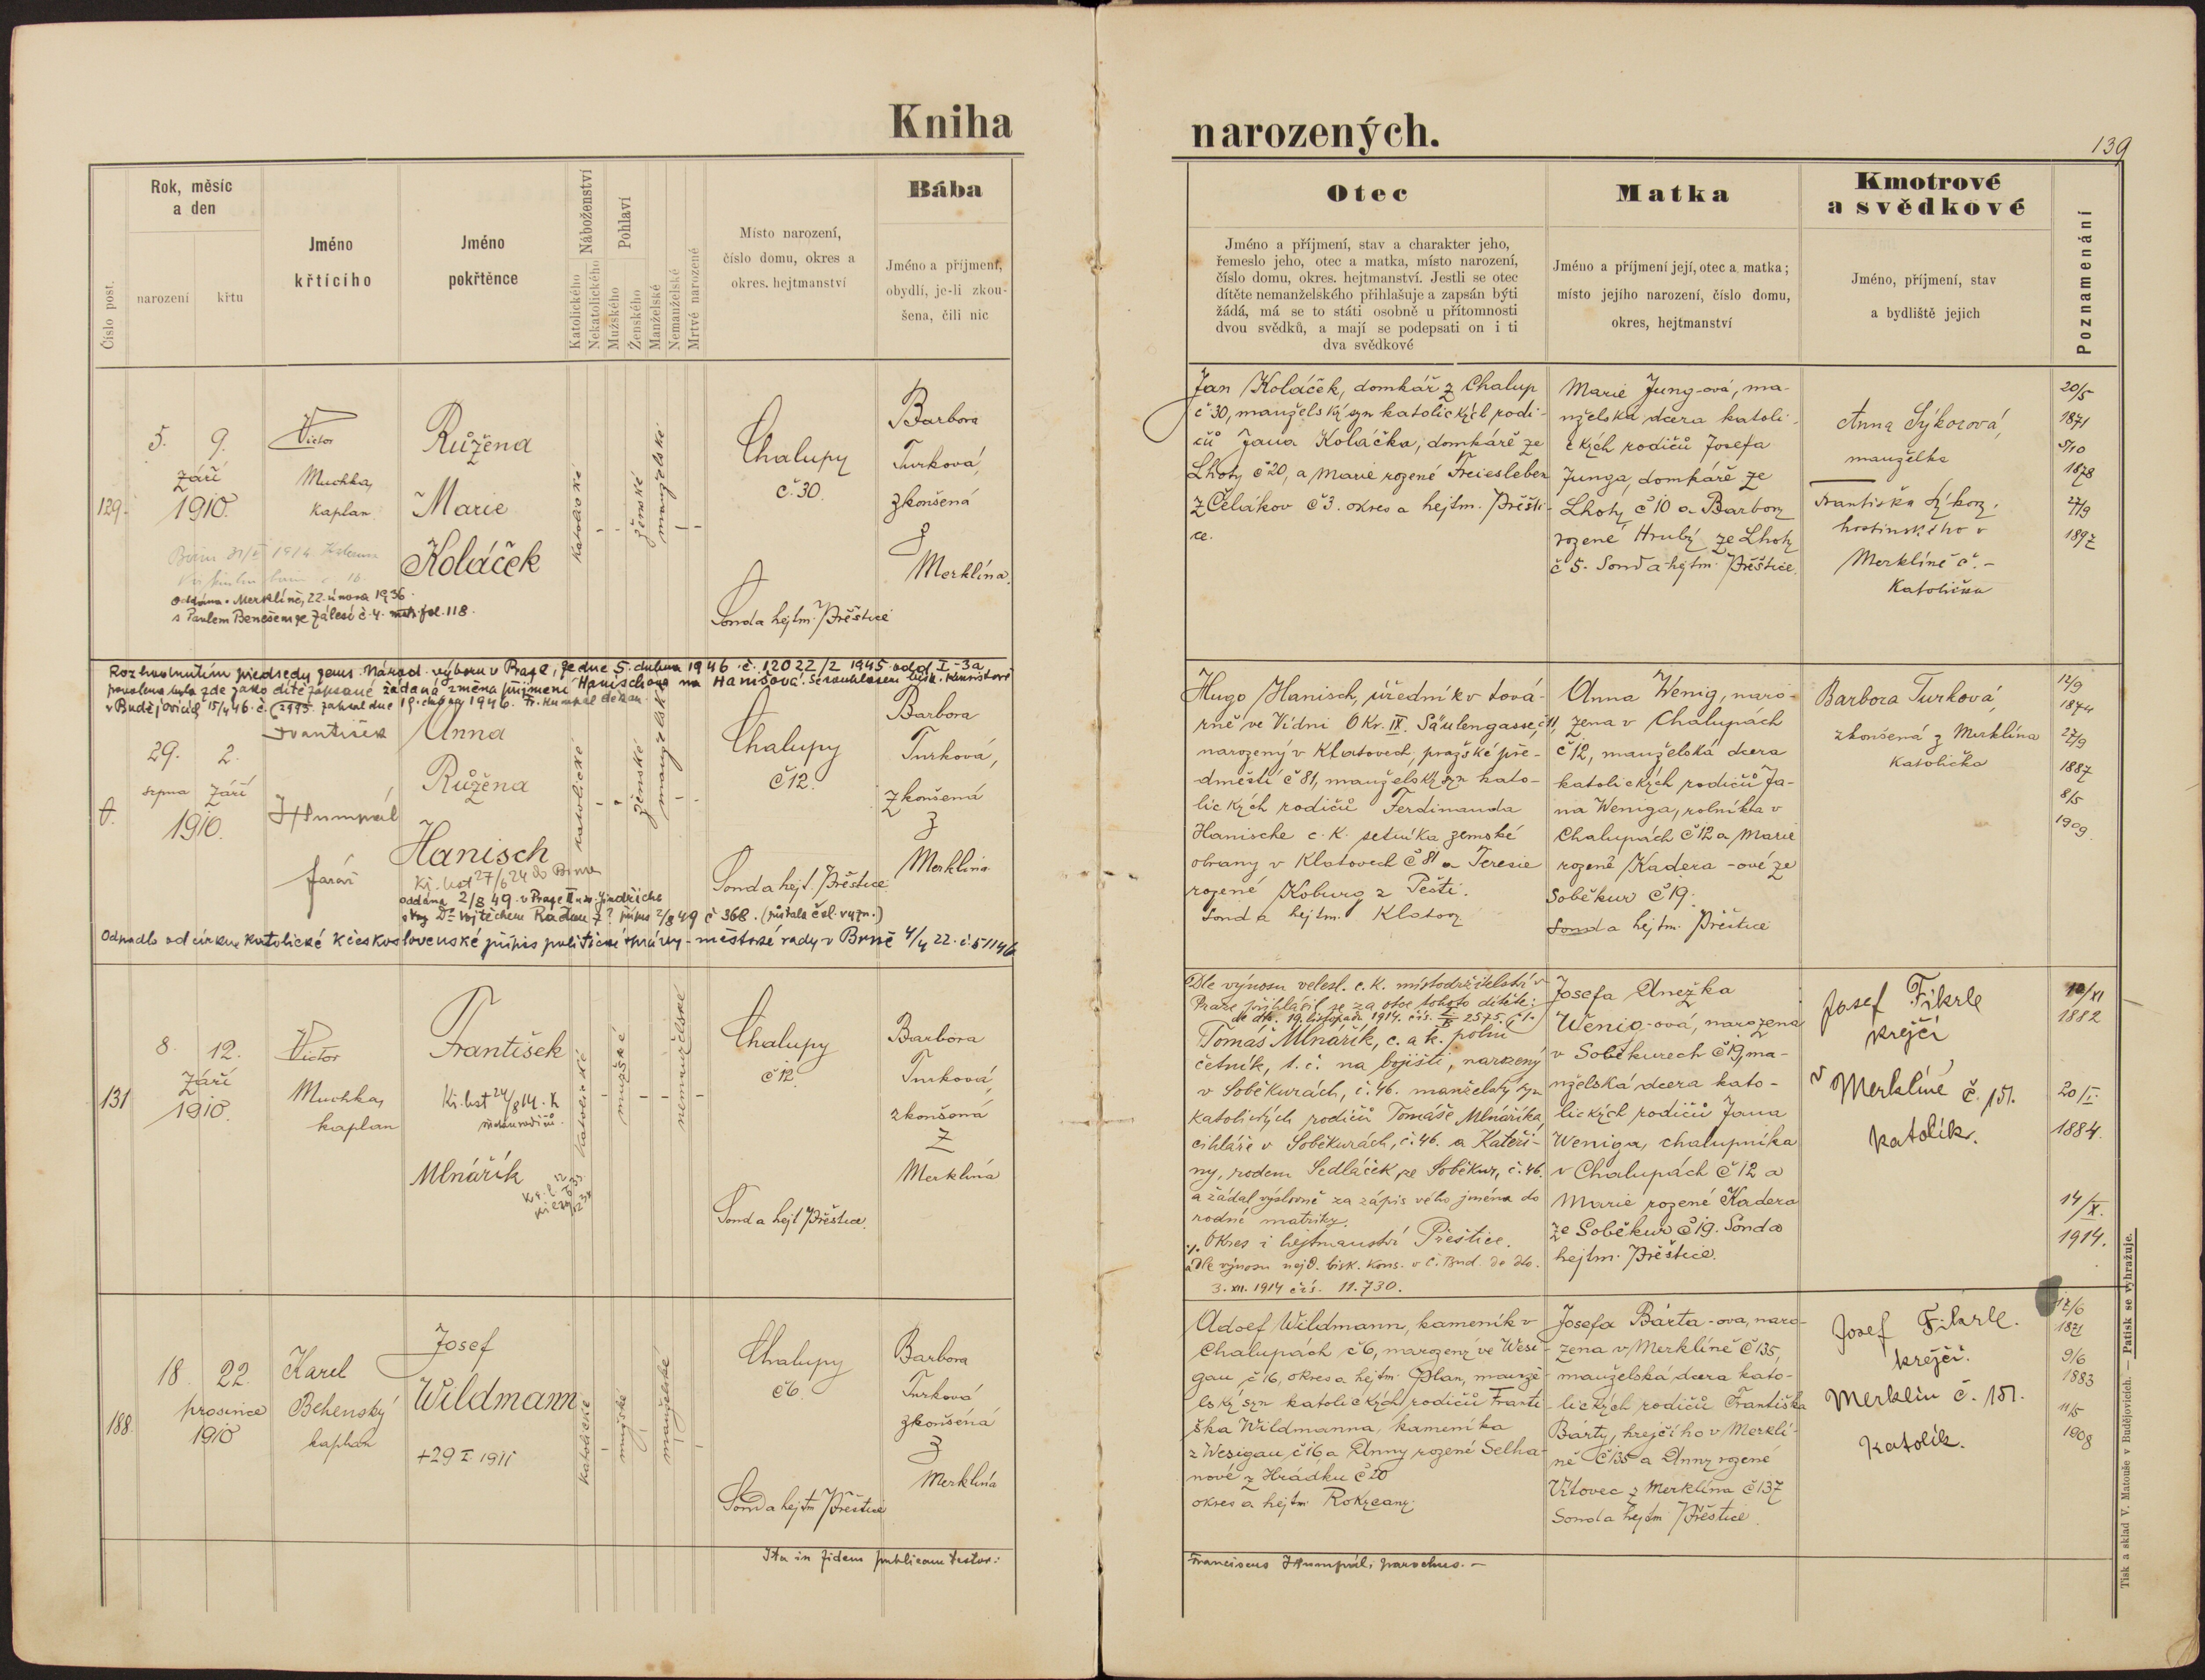 Kniha
narozených.
139
Číslo post.
Rok, měsíc
a den
narození
křtu
Jméno
křtícího
Jméno
pokřtěnce
Náboženství
Katolického
Nekatolického
Pohlaví
Mužského
Ženského
Manželské
Nemanželské
Mrtvě narozené
Místo narození,
číslo domu, okres a
okres. hejtmanství
Bába
Jméno a příjmení,
obydlí, je-li zkou-
šena, čili nic
Otec
Jméno a příjmení, stav a charakter jeho,
řemeslo jeho, otec a matka, místo narození,
číslo domu, okres. hejtmanství. Jestli se otec
dítěte nemanželského přihlašuje a zapsán býti
žádá, má se to státi osobně u přítomnosti
dvou svědků, a mají se podepsati on i ti
dva svědkové
Matka
Jméno a příjmení její, otec a matka;
místo jejího narození, číslo domu,
okres, hejtmanství
Kmotrové
a svědkové
Jméno, příjmení, stav
a bydliště jejich
Poznamenání
129.
5. 9.
září
1910.
Victor
Muchka,
kaplan
Růžena
Marie
Koláček
katolické
ženské
manželské
Chalupy
č. 30.
Soud a hejtm. Přeštice
Barbora
Turková,
zkoušená
z
Merklína.
oddána v Merklíně, 22. února 1936
s Pavlem Benešem ze Zálesí č. 4. matr. fol. 118.
Jan Koláček, domkář z Chalup
č 30, manželský syn katolických rodi-
čů Jana Koláčka, domkáře ze
Lhoty č 20, a Marie rozené Freiesleben
z Čelákov č 3. okres a hejtm. Přešti-
ce.
Marie Jung-ová, ma-
nželská dcera katoli-
ckých rodičů Josefa
Junga, domkáře ze
Lhoty č 10 a Barbory
rozené Hrubý ze Lhoty
č 5. Soud a hejtm. Přeštice.
Anna Sýkorová,
manželka
Františka Sýkory,
hostinského v
Merklíně č. –
katolička
20/5
1871
5/10
1878
27/9
1897
Rozhodnutím předsedy zems. národ. výboru v Praze, ze dne 5. dubna 1946 č. 12022/2 1945 odd. I-3a
povolena byla zde jako dítě zapsané žádaná změna příjmení Hanischová na Hanišová. Se souhlasem bisk. konsistoře
v Buděj ovicích 15/4 46. č. 2995. zapsal dne 19. dubna 1946. Fr. Humpál děkan.
29. 2.
srpna září
1910.
František
Humpál
farář
Anna
Růžena
Hanisch
Kř. list 27/6 24 do Brna
katolické
ženské
manželské
Chalupy
č 12.
Soud a hejt. Přeštice
Barbora
Turková,
zkoušená
z
Merklína
oddána 2/8 49 v Praze II u sv. Jindřicha
Odpadla od církve katolické k československé přípis politické správy - městské rady v Brně 4/4 22. č. 51146
Hugo Hanisch, úředník v továr-
rně ve Vídni Okr. IX. Säulengasse, č 11,
narozený v Klatovech, pražské pře-
dměstí č 81, manželský syn kato-
lických rodičů Ferdinanda
Hanische c. k. setníka zemské
obrany v Klatovech č 81 a Teresie
rozené Koburg z Pešti.
Soud a hejtm. Klatovy
Anna Wenig, naro-
zena v Chalupách
č 12, manželská dcera
katolických rodičů Ja-
na Weniga, rolníka v
Chalupách č 12 a Marie
rozené Kadera-ové ze
Soběkur č 19.
Soud a hejtm. Přeštice
Barbora Turková,
zkoušená z Merklína
katolička
12/9
1874
27/9
1887
8/5
1909.
131
8. 12.
září
1910.
Victor
Muchka,
kaplan
František
Kř. list 24/8 14. K
Mlnářík
katolické
mužské
nemanželské
Chalupy
č 12.
Soud a hejt Přeštice.
Barbora
Turková,
zkoušená
z
Merklína
Dle výnosu velesl. c. k. místodržitelství v
Praze přihlásil se za otce tohoto dítěte:
de dto. 19. listopadu 1914. čís.
Tomáš Mlnářík, c. a k. polní
četník, t. č. na bojišti, narozený
v Soběkurách, č. 46. manželský syn
katolických rodičů Tomáše Mlnáříka,
cihláře v Soběkurách, č. 46. a Kateři-
ny, rodem Sedláček, ze Soběkur, č. 46.
a žádal výslovně za zápis svého jména do
rodné matriky.
Okres i hejtmanství Přeštice.
a dle výnosu nejd. bisk. kons. v Č. Bud. de dto.
3. XII. 1914 čís. 11.730.
Josefa Anežka
Wenig-ová, narozena
v Soběkurech č 19, ma-
nželská dcera kato-
lických rodičů Jana
Weniga, chalupníka
v Chalupách č 12 a
Marie rozené Kadera
ze Soběkur č 19. Soud a
hejtm. Přeštice.
Josef Fikrle
krejčí
v Merklíně č. 151.
katolík.
12/XI
1882
20/I
1884.
14/X.
1914.
188.
18. 22.
prosince
1910
Karel
Behenský
kaplan
Josef
Wildmann
+29 I. 1911
katolické
mužské
manželské
Chalupy
č 6.
Soud a hejtm Přeštice
Barbora
Turková
zkoušená
z
Merklína
Adolf Wildmann, kameník v
Chalupách č 6, narozený ve Wesi-
gau č 16, okres a hejtm. Plan, manže-
lský syn katolických rodičů Franti-
ška Wildmanna, kameníka
z Wesigau č 16 a Anny rozené Selha-
nové z Hrádku č 20
okres a hejtm. Rokycany.
Josefa Bárta-ova, naro-
zena v Merklíně č 135,
manželská dcera kato-
lických rodičů Františka
Bárty, krejčího v Merklí-
ně č 135 a Anny rozené
Vítovec z Merklína č 137
Soud a hejtm Přeštice.
Josef Fikrle.
krejčí.
Merklin č. 151.
katolík.
17/6
1871
9/6
1883
11/5
1908
Ita in fidem publicam testor:
Franciscus Humpál, parochus. –
Tisk a sklad V. Matouše v Budějovicích. — Patisk se vyhražuje.